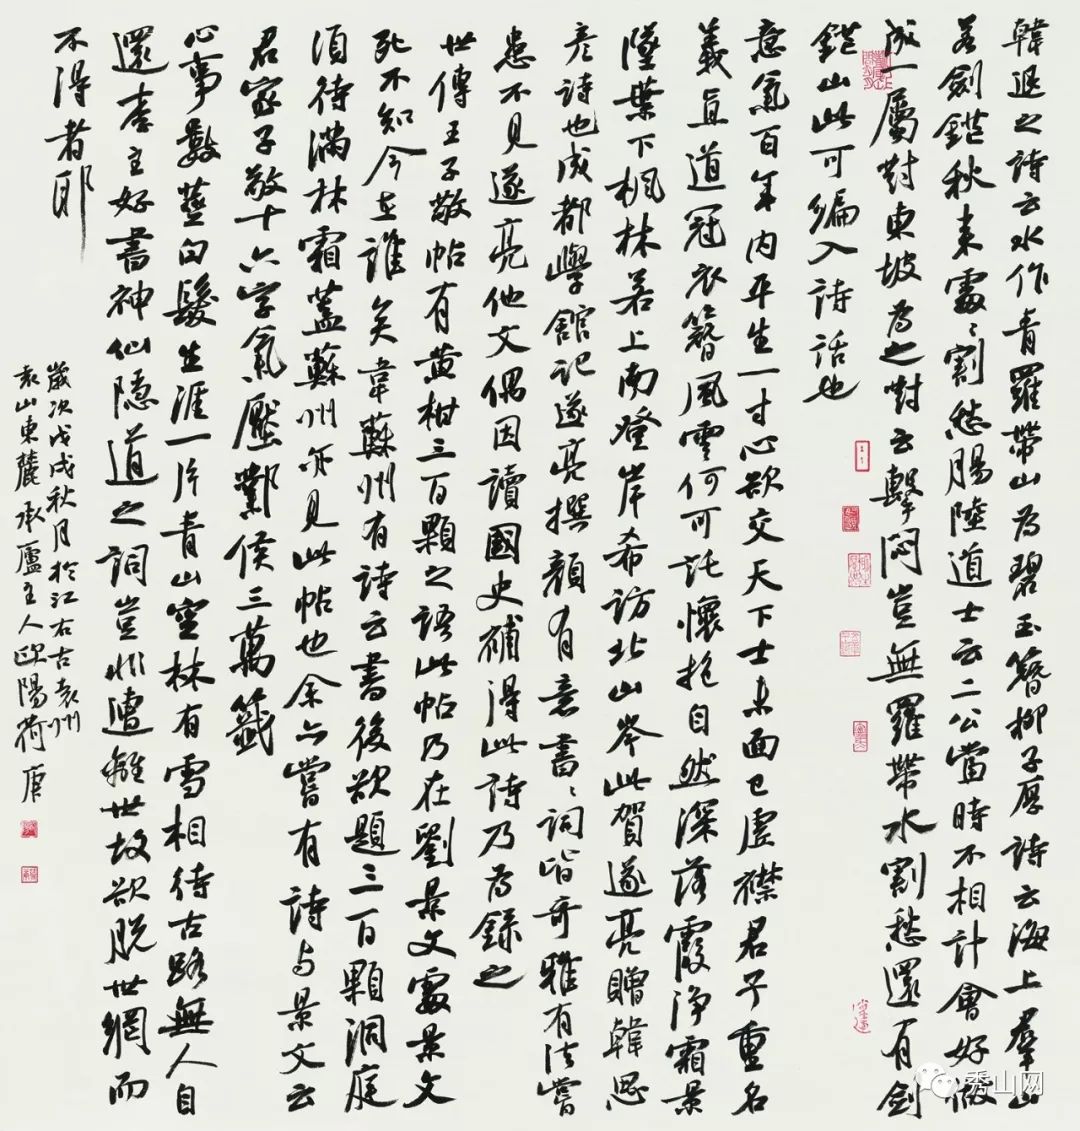 韓退之詩云水作青羅帶山為碧玉簪柳子厚詩云海上羣山
若劍鋩秋來處〻割愁腸陸道士云二公當時不相計會好做
成一屬對東坡為之對云繫悶豈無羅帶水割愁還有劍
鋩山此可編入詩話也
意氣百年內平生一寸心欲交天下士未面已虛襟君子重名
義直道冠衣簪風雲何可託懷抱自然深落霞淨霜景
墜葉下楓林若上南登岸希訪北山岑此賀遂亮贈韓思
彥詩也成都學館記遂亮撰顏有意書〻詞皆奇雅有法嘗
患不見遂亮他文偶因讀國史補得此詩乃為錄之
世傳王子敬帖有黃柑三百顆之語此帖乃在劉景文處景文
死不知今在誰矣韋蘇州有詩云書後欲題三百顆洞庭
須待滿林霜蓋蘇州亦見此帖也余亦嘗有詩与景文云
君家子敬十六字氣壓鄴侯三萬籤
心事數莖白髮生涯一片青山空林有雪相待古路無人自
還李主好書神仙隱道之詞豈非遭離世故欲脫世網而
不得者耶
歲次戊戌秋月於江右古袁州
袁山東麓承廬主人歐陽荷庚
秀山网